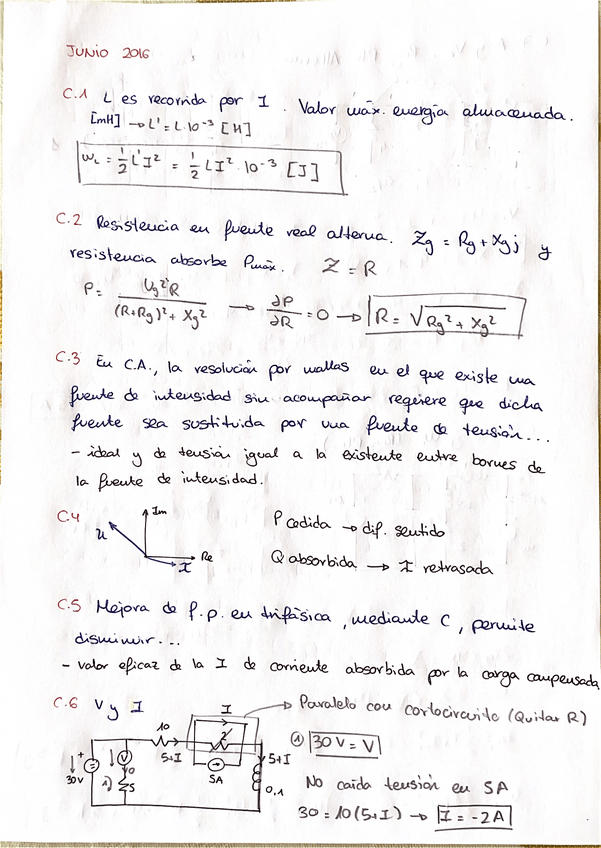 JUNIO 2016
C.1 L es recorrida por I. Valor máx. energía almacenada.
[mH] → L' = L·10⁻³ [H]
W_L = 1/2 L'I² = 1/2 LI²·10⁻³ [J]
C.2 Resistencia en fuente real alterna. Zg = Rg + Xgj y
resistencia absorbe Pmáx. Z = R
P = Ug²R / ((R+Rg)² + Xg²) → ∂P/∂R = 0 → R = √(Rg² + Xg²)
C.3 En C.A., la resolución por mallas en el que existe una
fuente de intensidad sin acompañar requiere que dicha
fuente sea sustituida por una fuente de tensión...
- ideal y de tensión igual a la existente entre bornes de
la fuente de intensidad.
C.4 Im P cedida → dif. sentido
u Re I Q absorbida → I retrasada
C.5 Mejora de f.p. en trifásica, mediante C, permite
disminuir...
- valor eficaz de la I de corriente absorbida por la carga compensada
C.6 V y I I → Paralelo con cortocircuito (Quitar R)
10 2 ① 30V = V
+ V 5+I 5+I
30V 0 5A No caída tensión en 5A
1) 5 0,1 30 = 10(5+I) → I = -2A